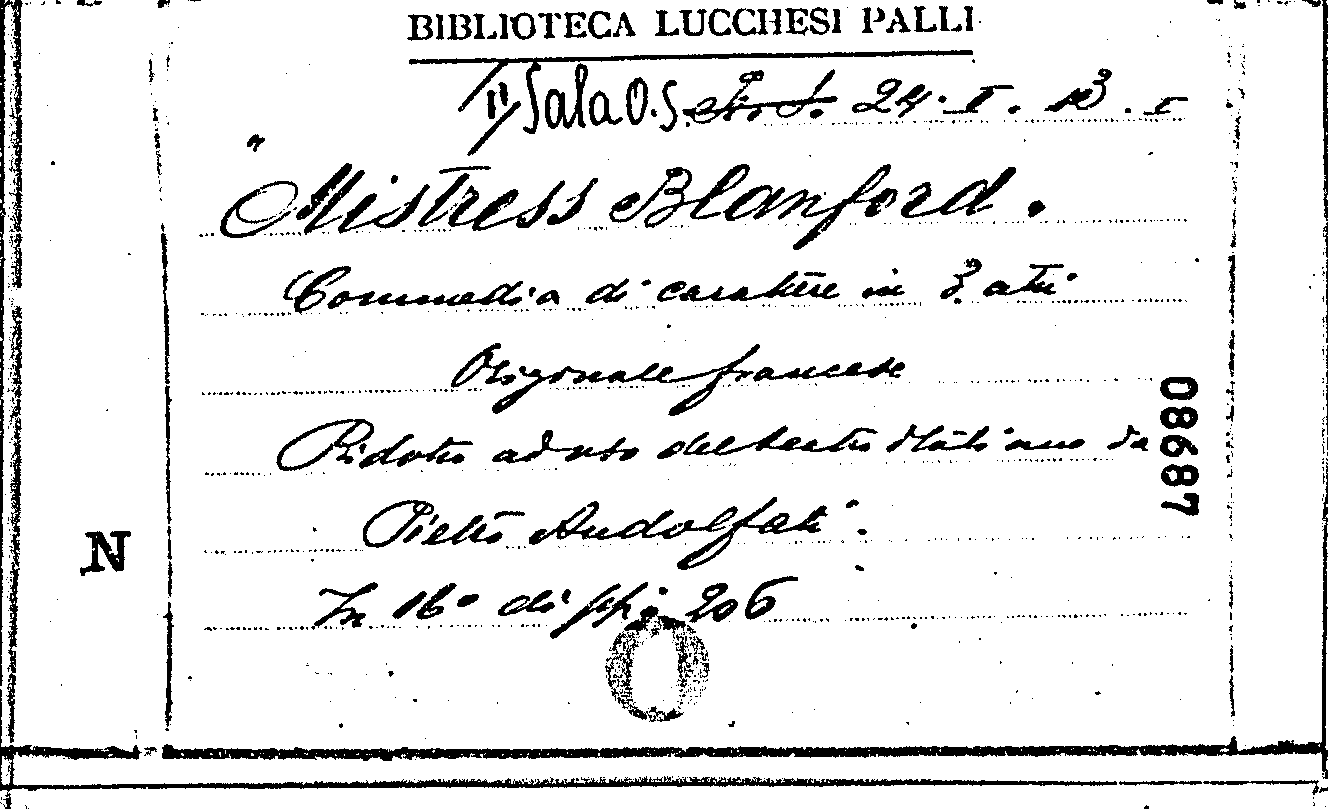 BIBLIOTECA LUCCHESI PALLI
II Sala O.S. 24. I. 13. I
"
Mistress Blanford.
Commedia di carattere in 3. atti
Originale francese
Ridotta ad uso del teatro italiano da
Pietro Andolfati.
In 16° di pp. 206
08687
N